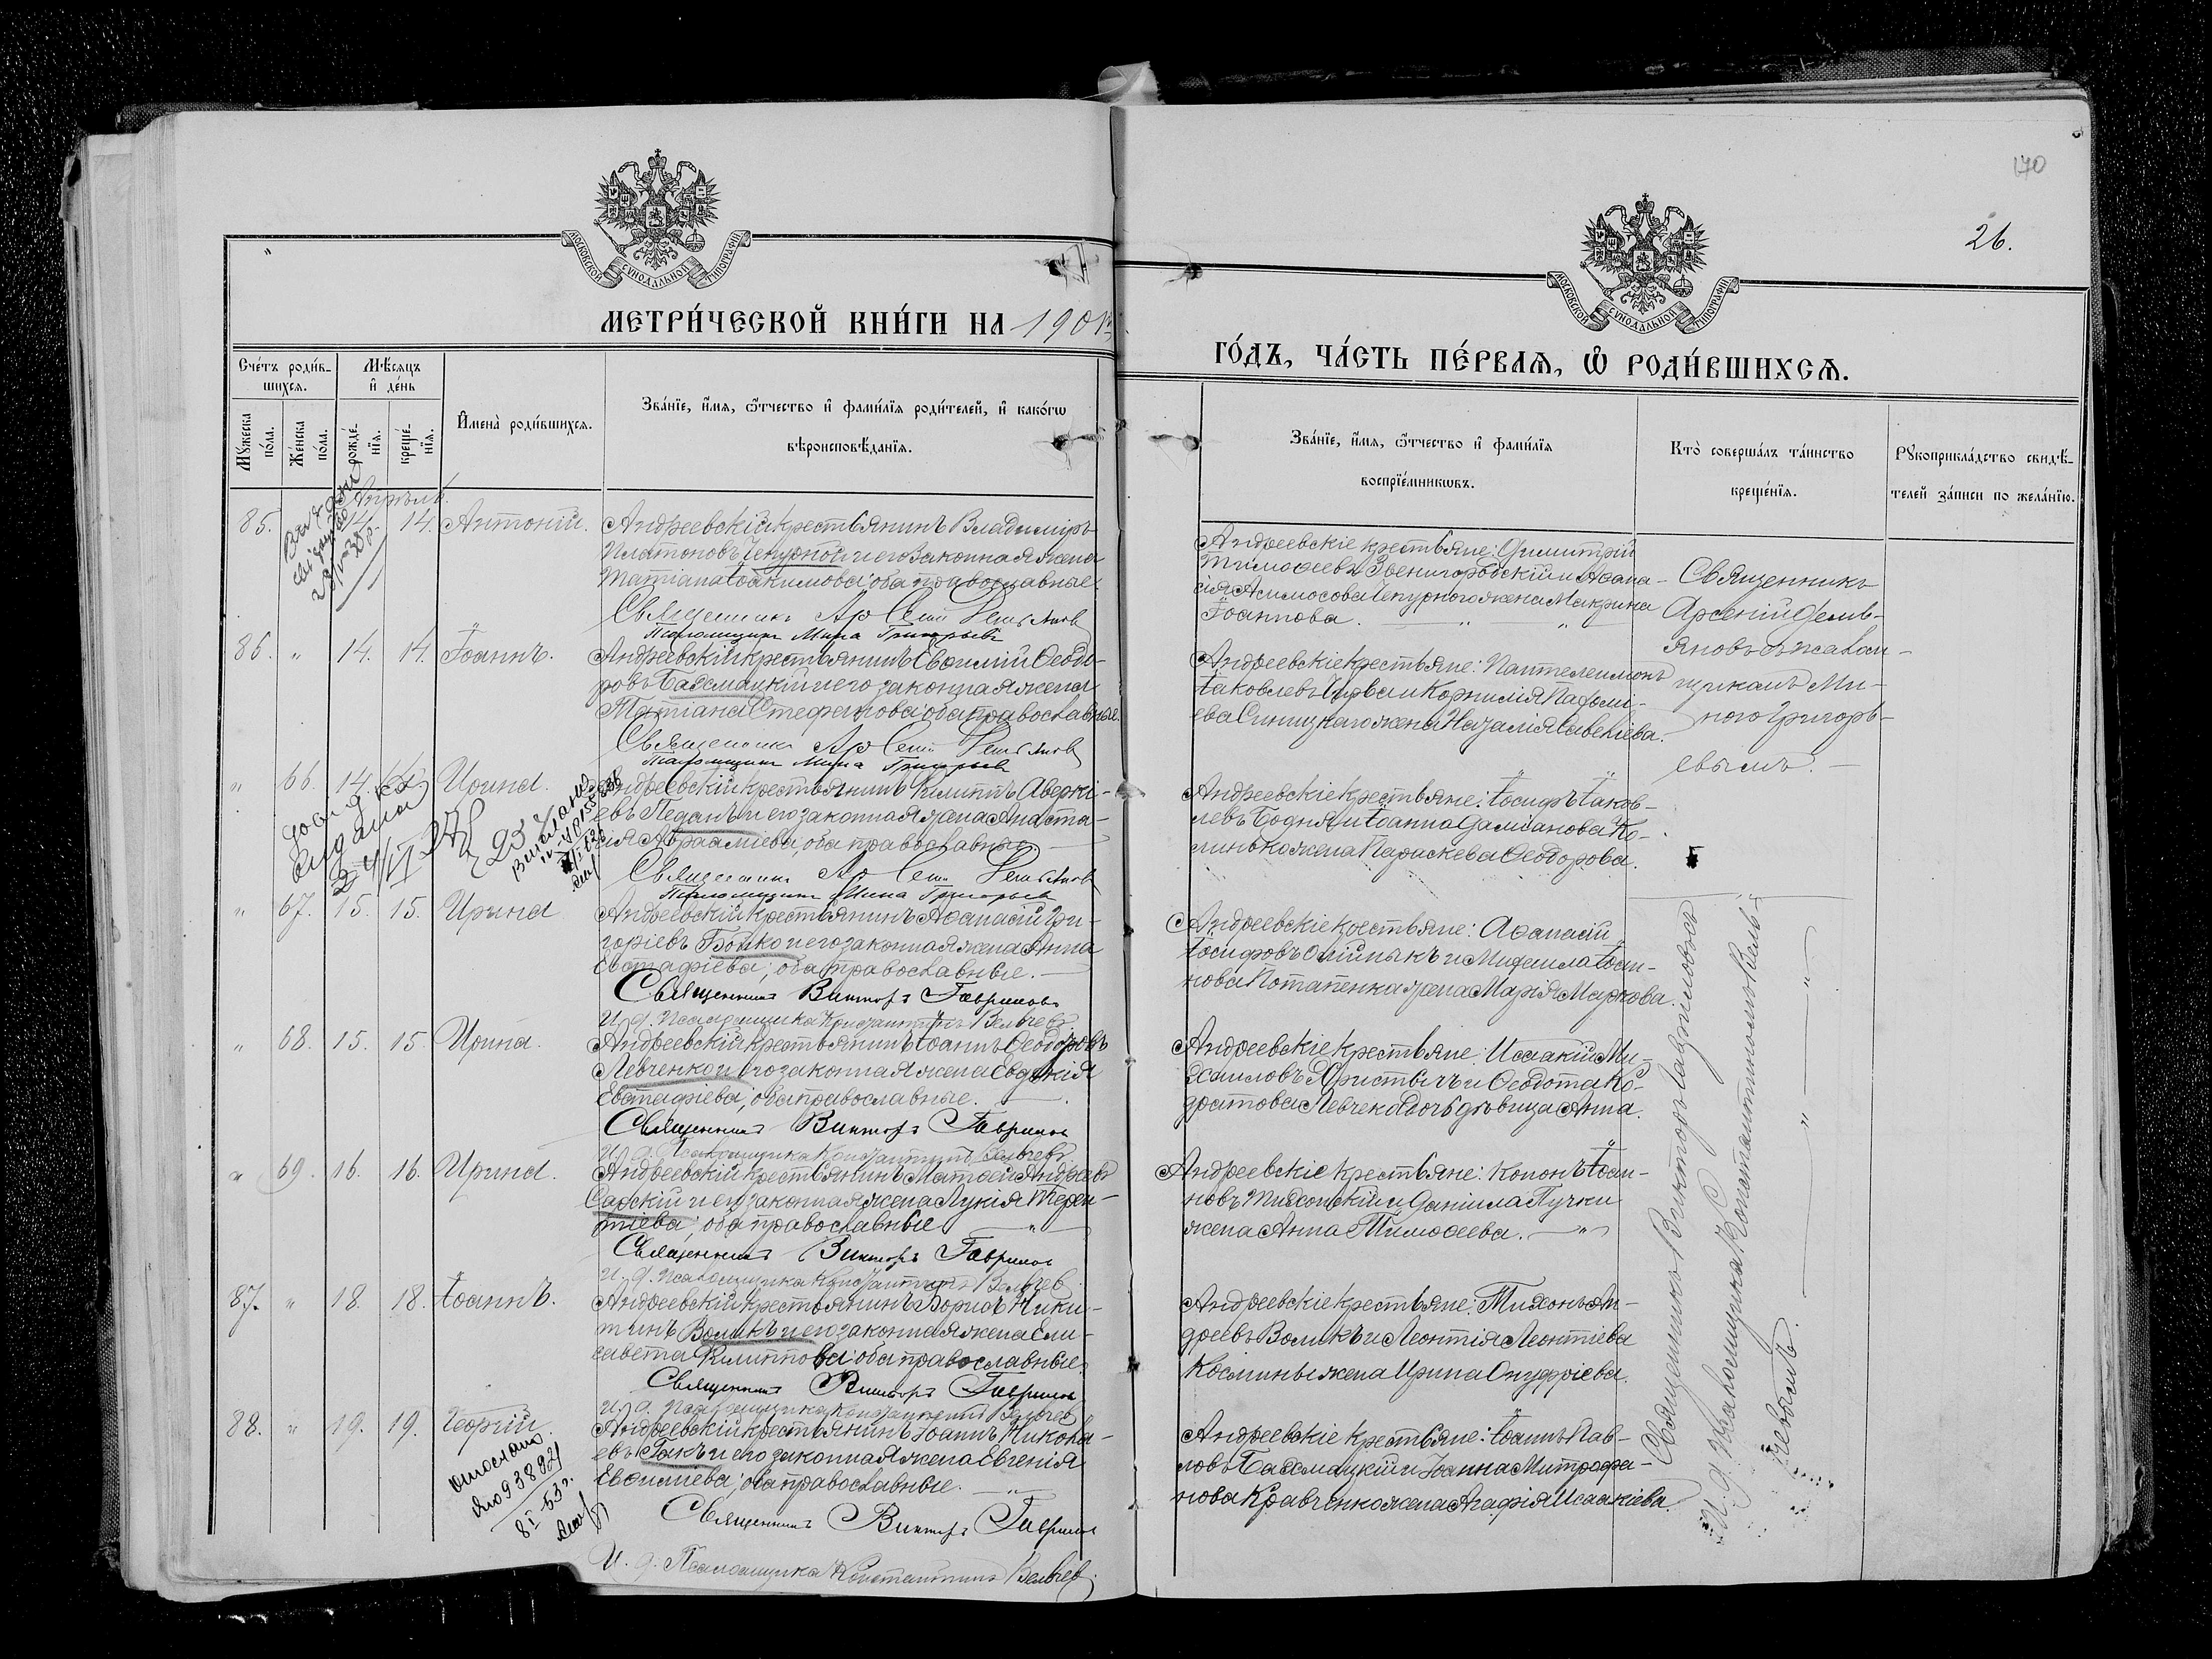 170
26.
МОСКОВСКОЙ СУНОДАЛЬНОЙ ТИПОГРАФІИ
МОСКОВСКОЙ СУНОДАЛЬНОЙ ТИПОГРАФІИ
МЕТРИ́ЧЕСКОЙ КНИ́ГИ НА 1901
ГО́ДЪ, ЧА́СТЬ ПЕ́РВАѦ, Ѡ҆ РОДИ́ВШИХСѦ.
Сче́тъ роди́в-
шихсѧ.
Мѣ́сѧцъ
и҆ де́нь
Мꙋ́жеска
по́ла.
Же́нска
по́ла.
рожде́-
нїѧ.
креще́-
нїѧ.
И҆мена̀ роди́вшихсѧ.
Зва́нїе, и҆́мѧ, ѻ҆́тчество и҆ фами́лїѧ роди́телей, и҆ како́гѡ
вѣроисповѣ́данїѧ.
Зва́нїе, и҆́мѧ, ѻ҆́тчество и҆ фами́лїѧ
воспрїе́мникѡвъ.
Кто̀ соверша́лъ та́инство
креще́нїѧ.
Рꙋкоприкла́дство свидѣ́-
телей за́писи по жела́нїю.
Апрѣль.
85. 14. 14. Антоній. Андреевскій крестьянинъ Владиміръ
Платоновъ Чепурной и его законная жена
Татіана Іоакимова; оба православные.
Священникъ Арсеній Демьянов
Псаломщик Мина Григорьев
Андреевскіе крестьяне: Димитрій
Тимоѳеевъ Звенигородскій и Аѳана-
сія Чепурного жена Макрина
Іоаннова.
Священникъ
Арсеній Демь-
яновъ съ псалом-
щикомъ Ми-
ною Григорь-
евымъ.
86. " 14. 14. Іоаннъ. Андреевскій крестьянинъ Евѳимій Ѳеодо-
ровъ Бахмацкій и его законная жена
Татіана Стефанова; оба православные.
Священникъ Арсеній Демьянов
Псаломщик Мина Григорьев
Андреевскіе крестьяне: Пантелеимонъ
Іаковлевъ и Корнилія
Синицкаго жена Савеліева.
" 66. 14. Ирина. Андреевскій крестьянинъ Филиппъ Аверкі-
евъ Педанъ и его законная жена Анаста-
сія Авраамієва; оба православные
Священникъ Арсеній Демьянов
Псаломщик Мина Григорьев
Андреевскіе крестьяне: Іосифъ Іаков-
левъ Бодня и Іоанна Даміанова
жена Параскева Ѳеодорова.
" 67. 15. 15. Ирина Андреевскій крестьянинъ Аѳанасій Гри-
горіевъ Бойко и его законная жена Анна
Евстафіева; оба православные.
Священникъ Викторъ Гаврилов
И. д. псаломщика Константинъ Вельчев
Андреевскіе крестьяне: Аѳанасій
Іосифовъ Олійныкъ и Михаила Іоан-
нова Потапенка жена Марія Маркова.
" 68. 15. 15. Ирина. Андреевскій крестьянинъ Іоаннъ Ѳеодоровъ
Левченко и его законная жена Евдокія
Евстафіева; оба православные.
Священникъ Викторъ Гаврилов
И. д. Псаломщика Константинъ Вельчев
Андреевскіе крестьяне: Исаакій Ми-
хаиловъ и Ѳеодота Ко-
дратова Левченка дочь дѣвица Анна.
" 69. 16. 16. Ирина. Андреевскій крестьянинъ Матѳей Андреевъ
Сарскій и его законная жена Лукія Терен-
тіева; оба православные
Священникъ Викторъ Гаврилов
И. д. псаломщика Константинъ Вельчев
Андреевскіе крестьяне: Кононъ Іоан-
новъ и Даніила Пучки
жена Анна Тимоѳеева.
87. " 18. 18. Іоаннъ. Андреевскій крестьянинъ Борисъ Ники-
тинъ Воликъ и его законная жена Ели-
савета Филиппова; оба православные.
Священникъ Викторъ Гаврилов
И. д. псаломщика Константинъ Вельчев
Андреевскіе крестьяне: Тихонъ Ан-
дреевъ Воликъ и Леонтія Леонтіева
Космины жена Ирина Онуфріева.
88. " 19. 19. Георгій. Андреевскій крестьянинъ Іоаннъ Никола-
евъ Гакъ и его законная жена Евгенія
Евѳиміева; оба православные.
Священникъ Викторъ Гаврилов
И. д. Псаломщика Константинъ Вельчев.
Андреевскіе крестьяне: Іоаннъ Пав-
ловъ Бахмацкій и Іоанна Митрофа-
нова Кравченко жена Агафія Исаакіева.
Священникъ Викторъ Гавриловъ съ
И. д. Псаломщика Константиномъ Вель-
чевымъ.